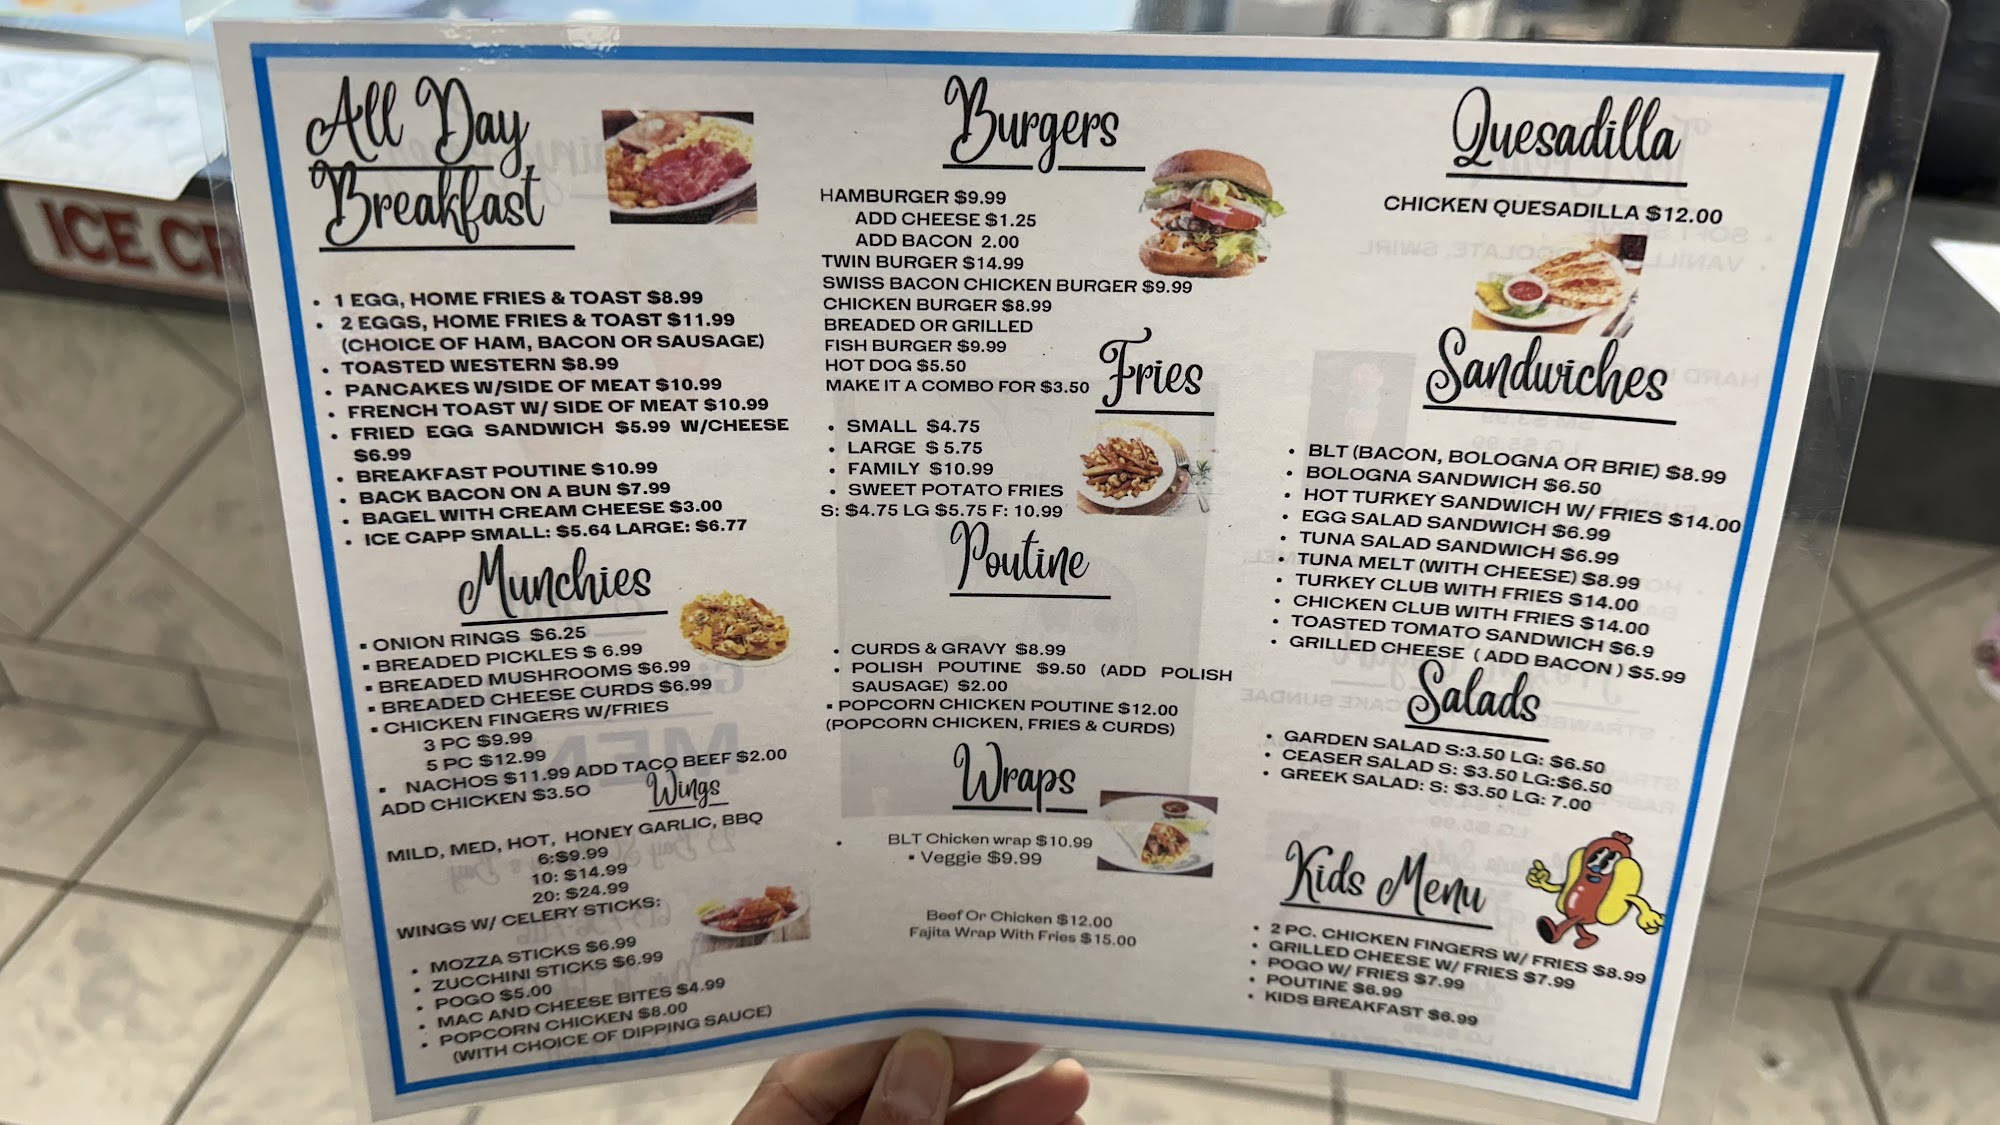 ICE CR
All Day
Breakfast
• 1 EGG, HOME FRIES & TOAST $8.99
• 2 EGGS, HOME FRIES & TOAST $11.99
(CHOICE OF HAM, BACON OR SAUSAGE)
• TOASTED WESTERN $8.99
• PANCAKES W/SIDE OF MEAT $10.99
• FRENCH TOAST W/ SIDE OF MEAT $10.99
• FRIED EGG SANDWICH $5.99 W/CHEESE
$6.99
• BREAKFAST POUTINE $10.99
• BACK BACON ON A BUN $7.99
• BAGEL WITH CREAM CHEESE $3.00
• ICE CAPP SMALL: $5.64 LARGE: $6.77
Munchies
▪ ONION RINGS $6.25
▪ BREADED PICKLES $ 6.99
▪ BREADED MUSHROOMS $6.99
▪ BREADED CHEESE CURDS $6.99
▪ CHICKEN FINGERS W/FRIES
3 PC $9.99
5 PC $12.99
• NACHOS $11.99 ADD TACO BEEF $2.00
ADD CHICKEN $3.50
Wings
MILD, MED, HOT, HONEY GARLIC, BBQ
6:$9.99
10: $14.99
20: $24.99
WINGS W/ CELERY STICKS:
• MOZZA STICKS $6.99
• ZUCCHINI STICKS $6.99
• POGO $5.00
• MAC AND CHEESE BITES $4.99
• POPCORN CHICKEN $8.00
(WITH CHOICE OF DIPPING SAUCE)
Burgers
HAMBURGER $9.99
ADD CHEESE $1.25
ADD BACON 2.00
TWIN BURGER $14.99
SWISS BACON CHICKEN BURGER $9.99
CHICKEN BURGER $8.99
BREADED OR GRILLED
FISH BURGER $9.99
HOT DOG $5.50
MAKE IT A COMBO FOR $3.50
Fries
• SMALL $4.75
• LARGE $ 5.75
• FAMILY $10.99
• SWEET POTATO FRIES
S: $4.75 LG $5.75 F: 10.99
Poutine
• CURDS & GRAVY $8.99
• POLISH POUTINE $9.50 (ADD POLISH
SAUSAGE) $2.00
▪ POPCORN CHICKEN POUTINE $12.00
(POPCORN CHICKEN, FRIES & CURDS)
Wraps
• BLT Chicken wrap $10.99
▪ Veggie $9.99
Beef Or Chicken $12.00
Fajita Wrap With Fries $15.00
Quesadilla
CHICKEN QUESADILLA $12.00
Sandwiches
• BLT (BACON, BOLOGNA OR BRIE) $8.99
• BOLOGNA SANDWICH $6.50
• HOT TURKEY SANDWICH W/ FRIES $14.00
• EGG SALAD SANDWICH $6.99
• TUNA SALAD SANDWICH $6.99
• TUNA MELT (WITH CHEESE) $8.99
• TURKEY CLUB WITH FRIES $14.00
• CHICKEN CLUB WITH FRIES $14.00
• TOASTED TOMATO SANDWICH $6.9
• GRILLED CHEESE ( ADD BACON ) $5.99
Salads
• GARDEN SALAD S:3.50 LG: $6.50
• CEASER SALAD S: $3.50 LG:$6.50
• GREEK SALAD: S: $3.50 LG: 7.00
Kids Menu
• 2 PC. CHICKEN FINGERS W/ FRIES $8.99
• GRILLED CHEESE W/ FRIES $7.99
• POGO W/ FRIES $7.99
• POUTINE $6.99
• KIDS BREAKFAST $6.99